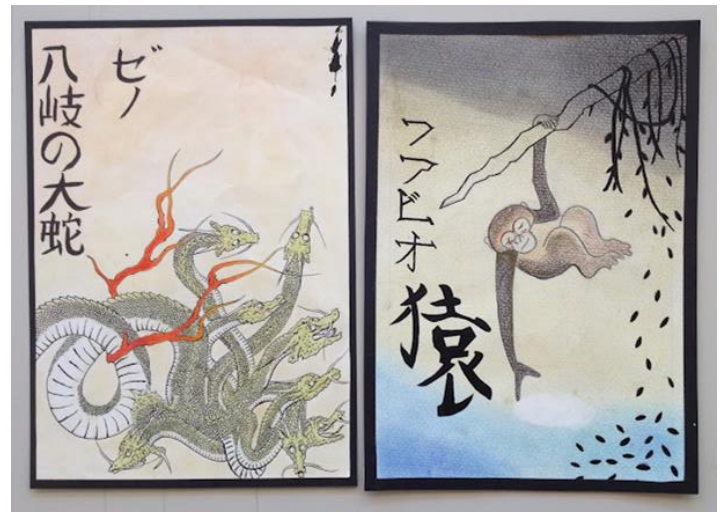 ゼノ
八岐の大蛇
ファビオ
猿